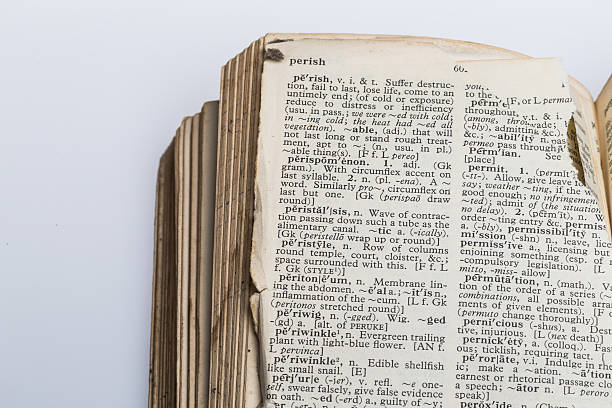 perish
60
pĕ'rish, v. i. & t. Suffer destruc-
tion, fail to last, lose life, come to an
untimely end; (of cold or exposure)
reduce to distress or inefficiency
(usu. in pass.; we were ~ed with cold;
in ~ing cold; the heat had ~ed all
vegetation). ~able, (adj.) that will
not last long or stand rough treat-
ment, apt to ~; (n., usu. in pl.)
~able thing(s). [F f. L pereo]
pĕrispōm'ĕnon. 1. adj. (Gk
gram.). With circumflex accent on
last syllable. 2. n. (pl. -ena). A ~
word. Similarly pro~, circumflex on
last but one. [Gk (perispaō draw
round)]
pĕristăl'|sis, n. Wave of contrac-
tion passing down such a tube as the
alimentary canal. ~tic a. (-ically).
[Gk (peristellō wrap up round)]
pĕ'ristȳle, n. Row of columns
round temple, court, cloister, &c.;
space surrounded with this. [F f. L
f. Gk (STYLE¹)]
pĕriton|ē'um, n. Membrane lin-
ing the abdomen. ~ē'al a.; ~it'is n.,
inflammation of the ~eum. [L f. Gk
(peritonos stretched round)]
pĕ'riwig, n. (-gged). Wig. ~ged
(-gd) a. [alt. of PERUKE]
pĕ'riwinkle¹, n. Evergreen trailing
plant with light-blue flower. [AN f.
L pervinca]
pĕ'riwinkle², n. Edible shellfish
like small snail. [E]
pĕr'jure (-jer), v. refl. ~e one-
self, swear falsely, give false evidence
on oath. (-erd) a., guilty of ~y;
you,
to the
perm'e [F, or L perman
throughout,
(among, through,
(-bly), admitting &c.);
&c.); ~abil'ity n.
permeo pass through
Pĕrm'ian. See
[place]
permit. 1. (permi't)
(-tt-). Allow, give leave
say; weather ~ting, if the w
good enough; no infringement
~ted); admit of (the situation
no delay). 2. (pĕr'mĭt), n. W
order ~ting entry &c. permiss
(-bly), permissibil'ity n.
mi'ssion (-shn) n., leave, lice
permiss'ive a., licensing but
enjoining something (esp. of
-compulsory legislation). [L
mitto, -miss- allow]
pĕrmūtā'tion, n. (math.).
tion of the order of a series (
combinations, all possible arran
ments of given elements). [F
(permuto change thoroughly)]
perni'cious (-shus), a. Destr
tive, injurious. [L (nex death)]
pernick'ĕty, a. (colloq.). Fasti
ous; ticklish, requiring tact. [
pĕ'ror|āte, v.i. Indulge in rhet
ic; make a ~ation. ~ā'tion n.,
earnest or rhetorical passage clos
a speech. ~ātor n. [L peroro